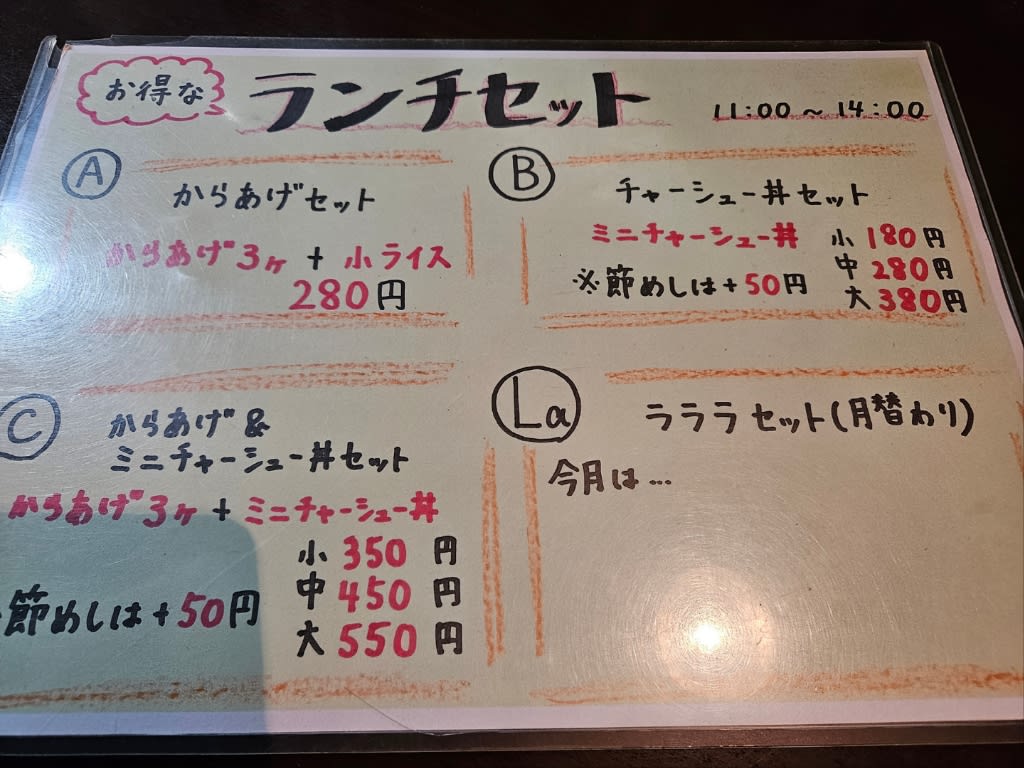 お得な ランチセット 11:00～14:00
A
からあげセット
からあげ3ヶ + 小ライス
280円
B
チャーシュー丼セット
ミニチャーシュー丼 小 180円
中 280円
※節めしは+50円
大 380円
C
からあげ&
ミニチャーシュー丼セット
からあげ3ヶ + ミニチャーシュー丼
小 350円
中 450円
大 550円
節めしは+50円
La
ラララセット(月替わり)
今月は…